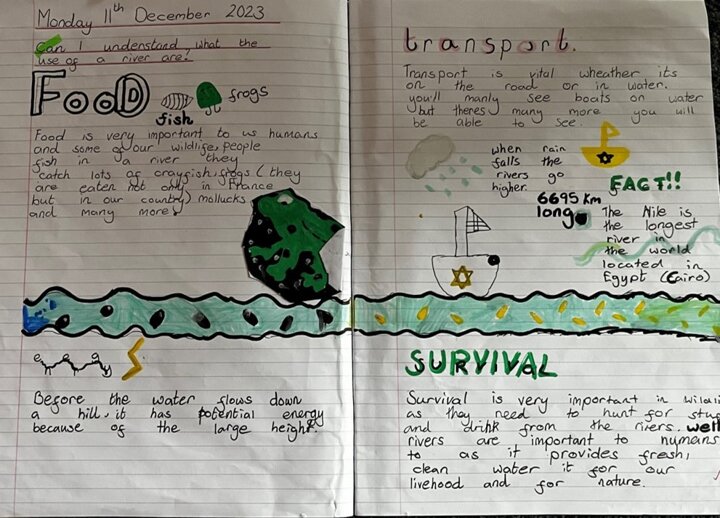 Monday 11th December 2023
Can I understand, what the
use of a river are?
FOOD
fish
frogs
Food is very important to us humans
and some of our wildlife, people
fish in a river they
catch lots of crayfish, frogs (they
are eaten not only in France
but in our country) mollucks
and many more!
Before the water flows down
a hill, it has potential energy
because of the large height.
transport.
Transport is vital wheather its
on the road or in water.
you'll manly see boats on water
but theres many more you will
be able to see.
when rain
falls the
rivers go
higher.
FACT!!
6695 km
long
The Nile is
the longest
river in
the world
located in
Egypt (Cairo)
SURVIVAL
Survival is very important in
as they need to hunt for
and drink from the rivers. well
rivers are important to humans
to as it provides fresh,
clean water it for our
livehood and for nature.